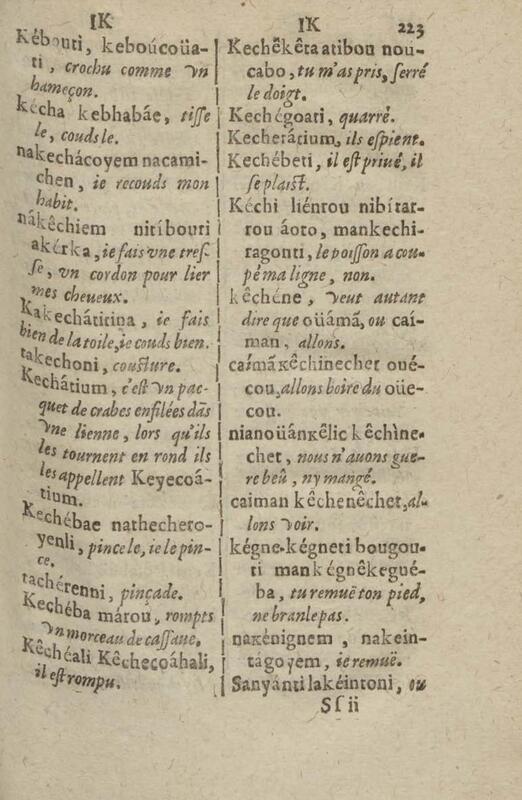 IK
Kébouti, keboúcoüa-
ti, crochu comme vn
hameçon.
kécha kebhabáe, tisse
le, couds le.
nakechácoyem nacami-
chen, ie recouds mon
habit.
nàkêchiem nitíbouri
akérka, ie fais vne tres-
se, vn cordon pour lier
mes cheueux.
Kakechâtitina, ie fais
bien de la toile, ie couds bien.
takechoni, cousture.
Kechâtium, c'est vn pac-
quet de crabes enfilées dãs
vne lienne, lors qu'ils
les tournent en rond ils
les appellent Keyecoá-
tium.
Kechébae nathecheto-
yenli, pince le, ie le pin-
ce.
tachérenni, pinçade.
Kechéba márou, rompts
vn morceau de cassaue.
Kêchéali Kêchecoáhali,
il est rompu.
IK 223
Kechêkêta atibou nou-
cabo, tu m'as pris, serré
le doigt.
Kechégoati, quarré.
Kecherátium, ils espient.
Kechébeti, il est priué, il
se plaist.
Kéchi liénrou nibítat-
rou áoto, mankechi-
ragonti, le poisson a cou-
pé ma ligne, non.
kêchéne, veut autant
dire que oüámã, ou caí-
man, allons.
caímãkêchinechet oué-
cou, allons boire du oüe-
cou.
nianoüánkêlic kêchìne-
chet, nous n'auons gue-
re beû, ny mangé.
caiman kêchenêchet, al-
lons voir.
kégne-kégneti bougou-
ti mankégnêkegué-
ba, tu remuë ton pied,
ne branle pas.
nakénignem, nakein-
tágoyem, ie remuë.
Sanyánti lakéintoni, ou
Sſ ii